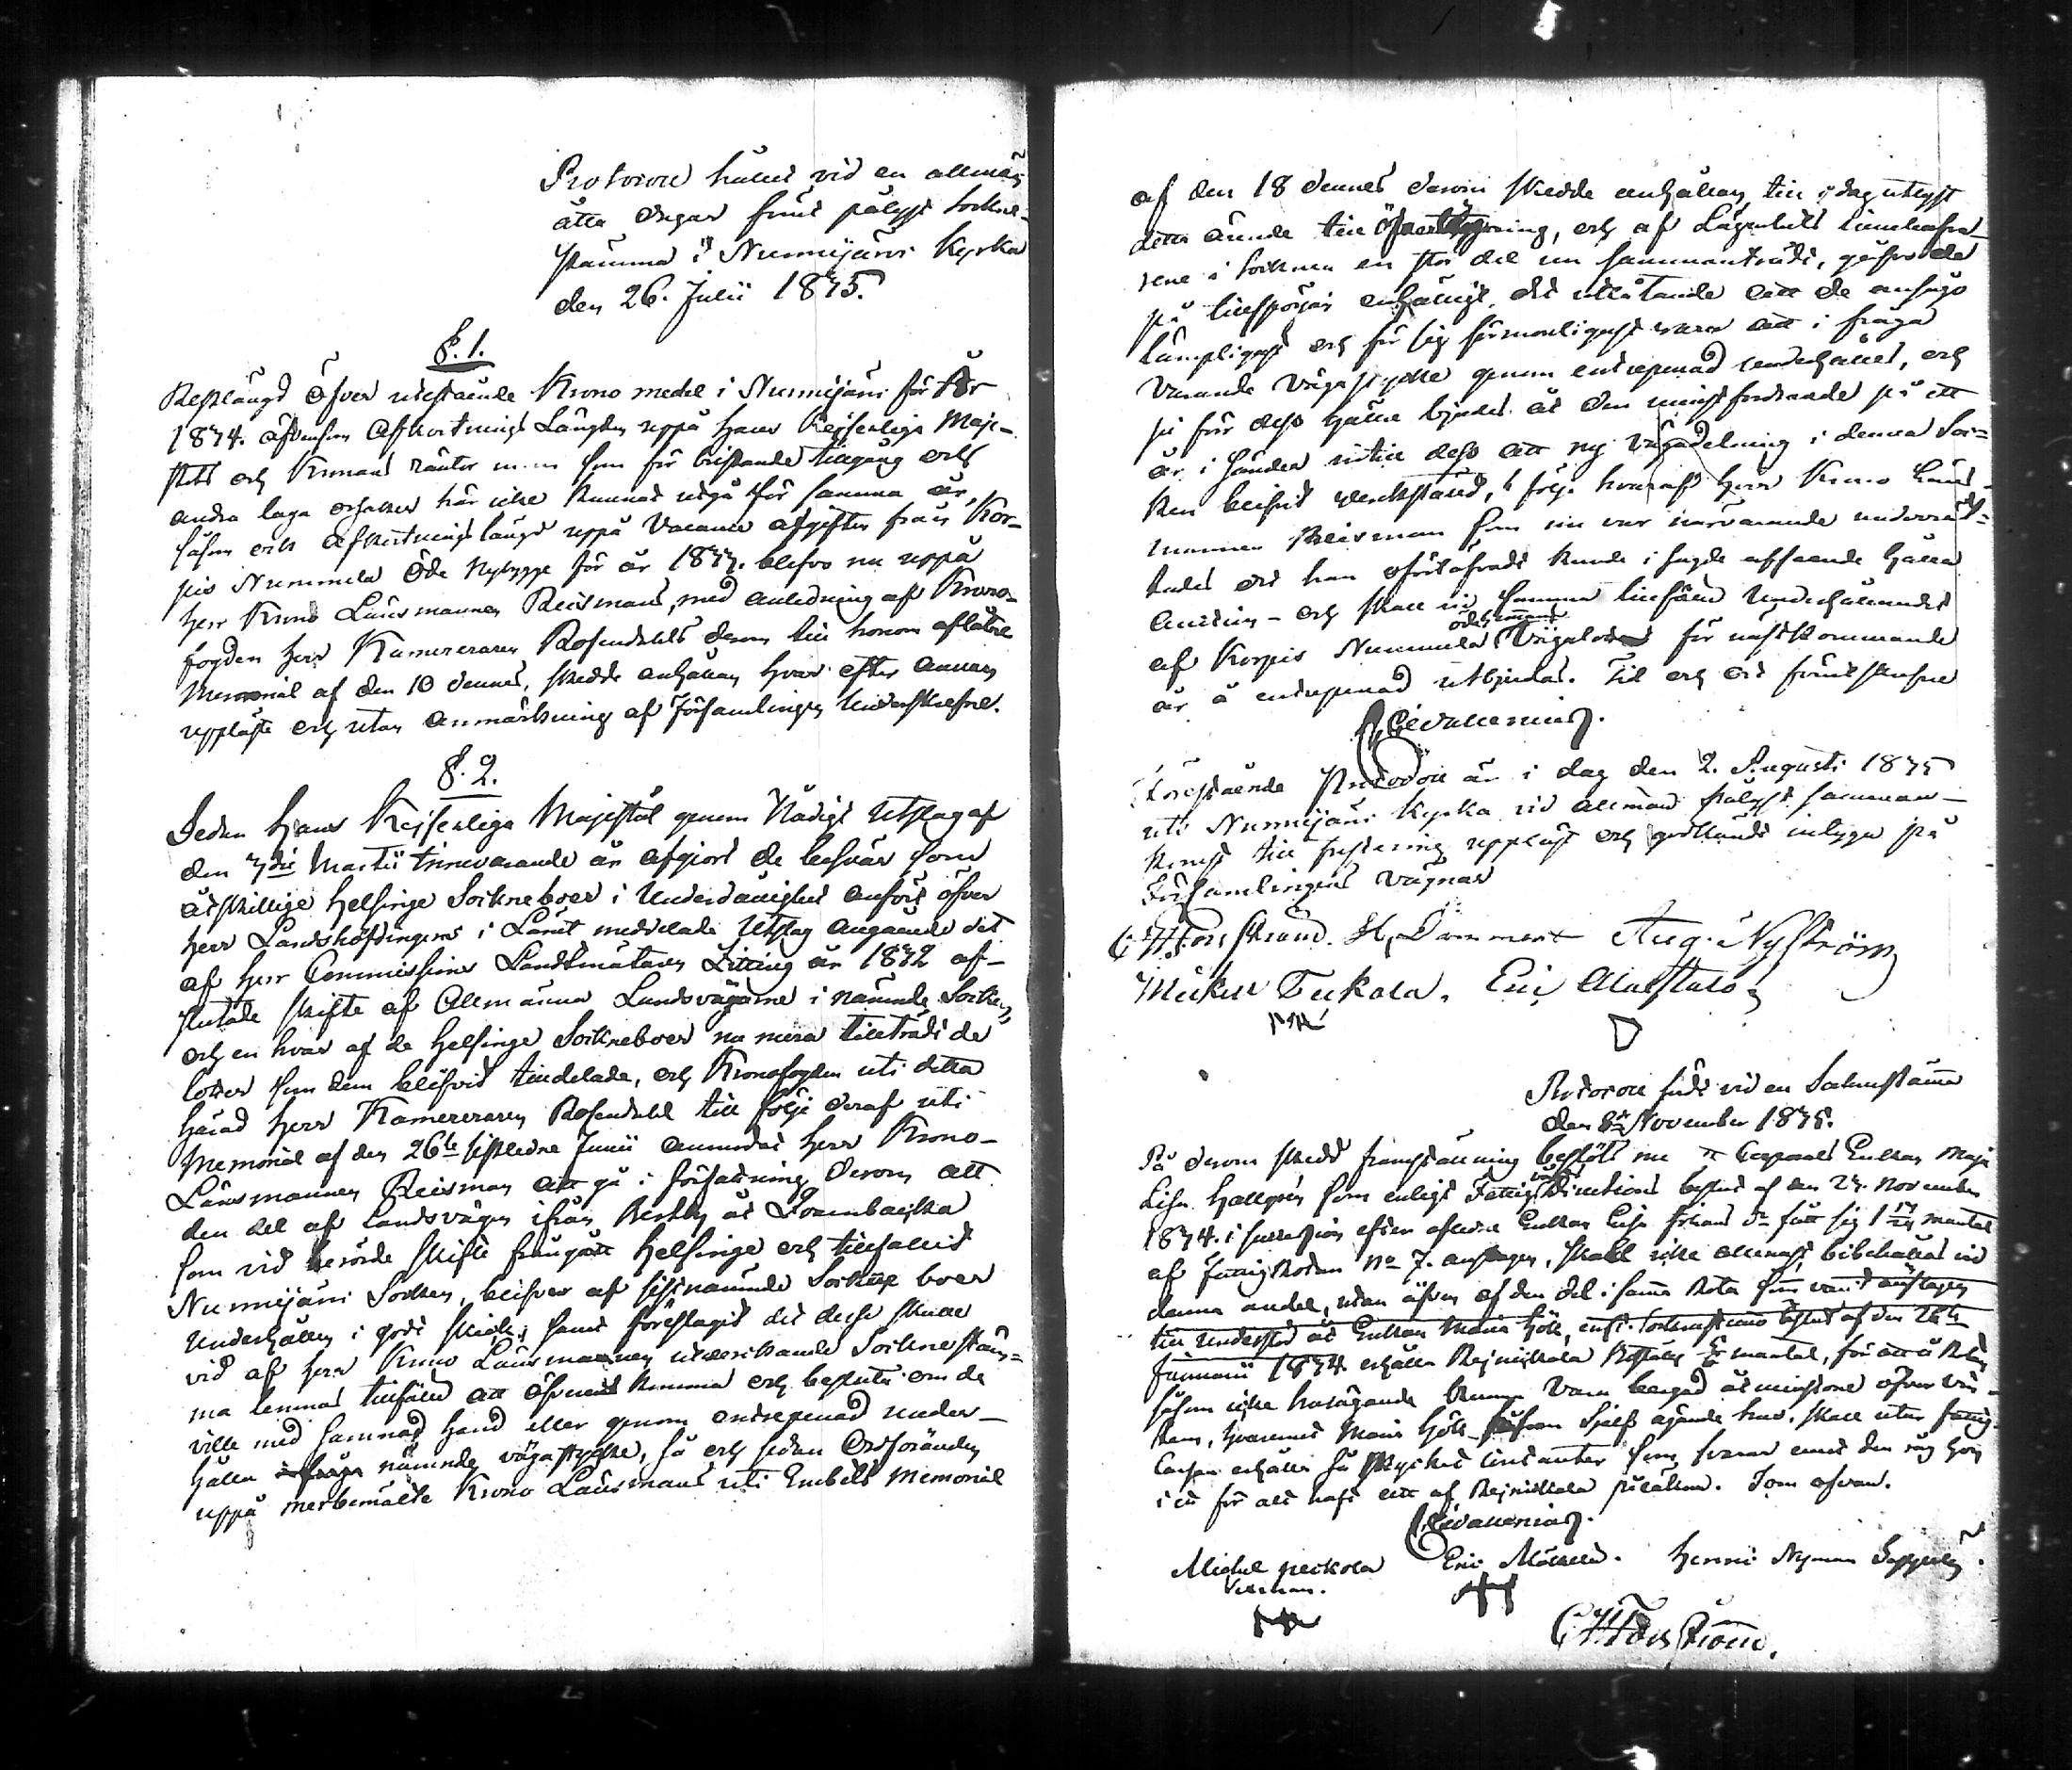 Protocoll hållet vid en allmän
åtta dagar förut pålyst Sockne-
stämma i Nummijärvi Kyrka
den 26. Julii 1845.
§. 1.
Restlängd öfver utestående Krono medel i Nummijärvi för år
1844. äfvensom Afkortnings Längden uppå Hans Kejserliga Maje-
stäts och Kronans räntor m.m. som för bristande tillgång och
andra laga orsaker här icke kunnat utgå för samma år,
såsom och afkortnings längd uppå Vacance afgiften från Kor-
pis Nummela Öde Nybygge för år 1844. blefvo nu uppå
Herr Krono Länsmannen Reismans, med anledning af Krono-
fogden Herr Kamereraren Rosendahls derom till honom aflåtne
Memorial af den 10 dennes, skedde anhållan hvar efter annan
uppläste och utan anmärkning af Församlingen Underskrefne.
§. 2.
Sedan Hans Kejserliga Majestät genom Nådigt Utslag af
den 7de Martii innevarande år afgjort de besvär som
åtskillige Helsinge Sockneboer i Underdånighet anfört öfver
Herr Landshöfdingens i Länet meddelade Utslag angående det
af Herr Commissions Landtmätaren Zitting år 1842 af-
slutade skifte af Allmänna Landsvägarne i nämnde Socken,
och en hvar af de Helsinge Sockneboer nu mera tillträdt de
lotter som dem blifvit tilldelade, och Kronofogden uti detta
Härad Herr Kamereraren Rosendahl till följe deraf uti
Memorial af den 26te sistledne Junii anmodat Herr Krono-
Länsmannen Reisman att gå i författning derom att
den del af Landsvägen ifrån Restby åt Loembacka
som vid berörde skifte frångått Helsinge och tillfallit
Nummijärvi Socken, blifver af sistnämnde Sockne boer
Underhållen i godt skick, samt föreslagit det desse skulle
vid af Herr Krono Länsmannen utverkande Sockne stäm-
ma lemnas tillfälle att öfverens komma och besluta om de
ville med samnad hand eller genom entreprenad under-
hålla nämnde vägastycke, så och sedan Ordföranden
uppå merbemälte Krono Länsmans uti Embets Memorial
af den 18 dennes derom skedde anhållan, till i dag utlyst
detta ärende till öfverläggning, och af Lägenhets innehafva-
rene i Socknen en stor del nu sammanträdt, gåfvo de
på tillspörjan enhälligt det utlåtande att de ansågo
lämpligast och för sig förmonligast vara att i fråga
varande vägastycke genom entreprenad underhålles, och
på för dess hålla bjudes åt den minst fordrande på ett
år i sänder intill dess att ny vägadelning i denna Soc-
ken blifvit verkstäld, i följe hvaraf Herr Krono Läns-
mannen Reisman som nu var närvarande underrät-
tades att han oförtöfvadt kunde i sagde afseende hålla
Auction - och skall vid samma tillfälle Underhållandet
af Korpis Nummela ödehemmans Vägalott för nästkommande
år å entreprenad utbjudas. Tid och ort förutskrefne
Clevallenius.
Förestående Protocoll är i dag den 2. Augusti 1845
uti Nummijärvi Kyrka vid allmän pålyst samman-
komst till justering uppläst och godkändt intyga på
Församlingens vägnar
H. Dammert Aug. Nyström
Mickel Teckola. Eric Alastalo
Protocoll fördt vid en Socknestämma
den 8 November 1845.
På derom skedd framställning beslöts nu att Corporals Enkan Maja
Lisa Hallgrén som enligt Fattigvårds Directions beslut af den 24. November
1844. i succession efter aflidne Enkan
af fattig Rotan No 7. antagen, skall icke allenast bibehållas vid
denna andel, utan äfven af den del i samma Rota som varit anslagen
till Understöd åt Enkan Maria Hjelt, enl. Socknestämmo beslut af den 26te
Januarii 1874. erhålla Rejniskala mantal, för att
såsom icke husägande kunna vara bergad åtminstone öfver vin-
tern, hvaremot Maria Hjelt såsom Sjelf ägande hus, skall utur fattig
Cassan erhålla så mycket
i fall för att haft att af Rejniskala Som ofvan.
Clevallenius.
Michel Jeckola Eric Mäkelä. Henric Nyman Seppälä.